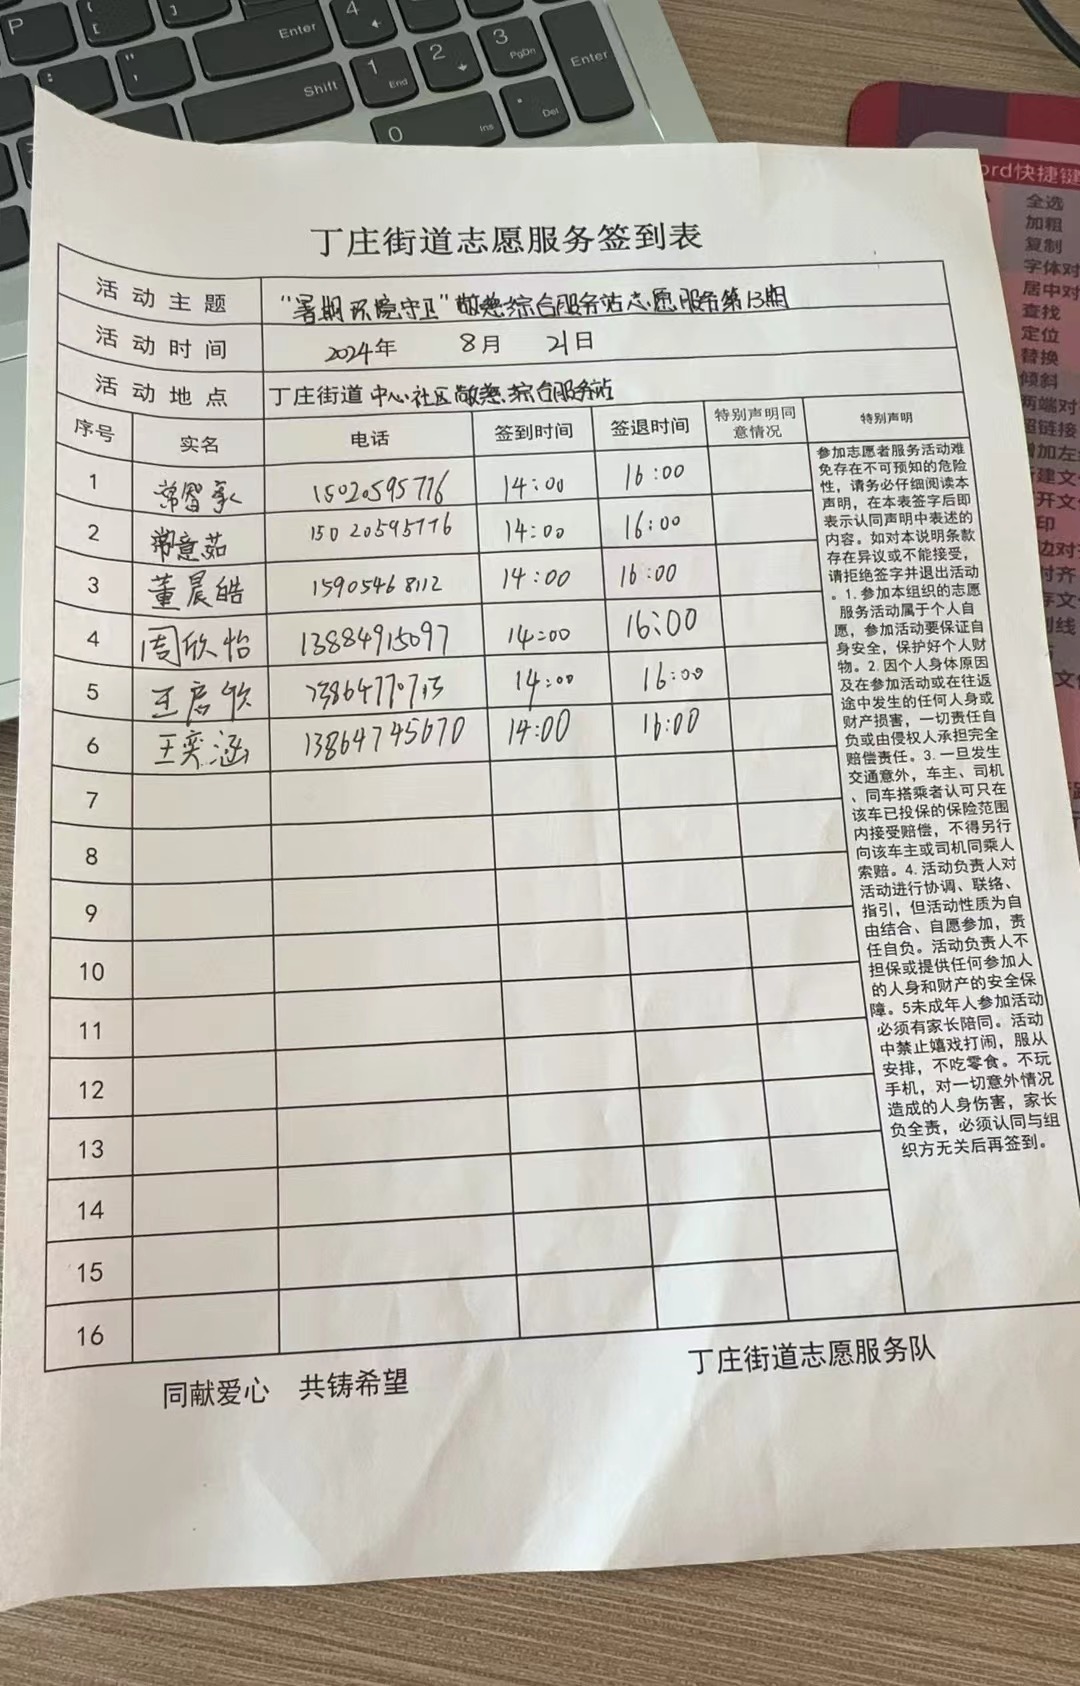 P
[
]
Enter
4
:
"
'
Shift
1
End
2
3
PgDn
Enter
0
Ins
.
Del
ord快捷键
全选
加粗
复制
字体对
居中对
查找
定位
替换
倾斜
两端对
超链接
增加左
新建文
打开文
印
边对
对齐
存文
划线
文件
丁庄街道志愿服务签到表
活动主题 "暑期环境守卫"敬慈综合服务站志愿服务第13期
活动时间 2024年 8月 21日
活动地点 丁庄街道中心社区敬慈综合服务站
序号 实名 电话 签到时间 签退时间 特别声明同意情况 特别声明
1 常智承 15020595776 14:00 16:00
2 常意茹 15020595776 14:00 16:00
3 董晨皓 15905468112 14:00 16:00
4 周欣怡 13884915097 14:00 16:00
5 14:00 16:00
6 王奕涵 13864745670 14:00 16:00
7
8
9
10
11
12
13
14
15
16
参加志愿者服务活动难
免存在不可预知的危险
性，请务必仔细阅读本
声明，在本表签字后即
表示认同声明中表述的
内容。如对本说明条款
存在异议或不能接受，
请拒绝签字并退出活动
。1.参加本组织的志愿
服务活动属于个人自
愿，参加活动要保证自
身安全，保护好个人财
物。2.因个人身体原因
及在参加活动或在往返
途中发生的任何人身或
财产损害，一切责任自
负或由侵权人承担完全
赔偿责任。3.一旦发生
交通意外，车主、司机
、同车搭乘者认可只在
该车已投保的保险范围
内接受赔偿，不得另行
向该车主或司机同乘人
索赔。4.活动负责人对
活动进行协调、联络、
指引，但活动性质为自
由结合、自愿参加，责
任自负。活动负责人不
担保或提供任何参加人
的人身和财产的安全保
障。5未成年人参加活动
必须有家长陪同。活动
中禁止嬉戏打闹，服从
安排，不吃零食。不玩
手机，对一切意外情况
造成的人身伤害，家长
负全责，必须认同与组
织方无关后再签到。
同献爱心 共铸希望
丁庄街道志愿服务队